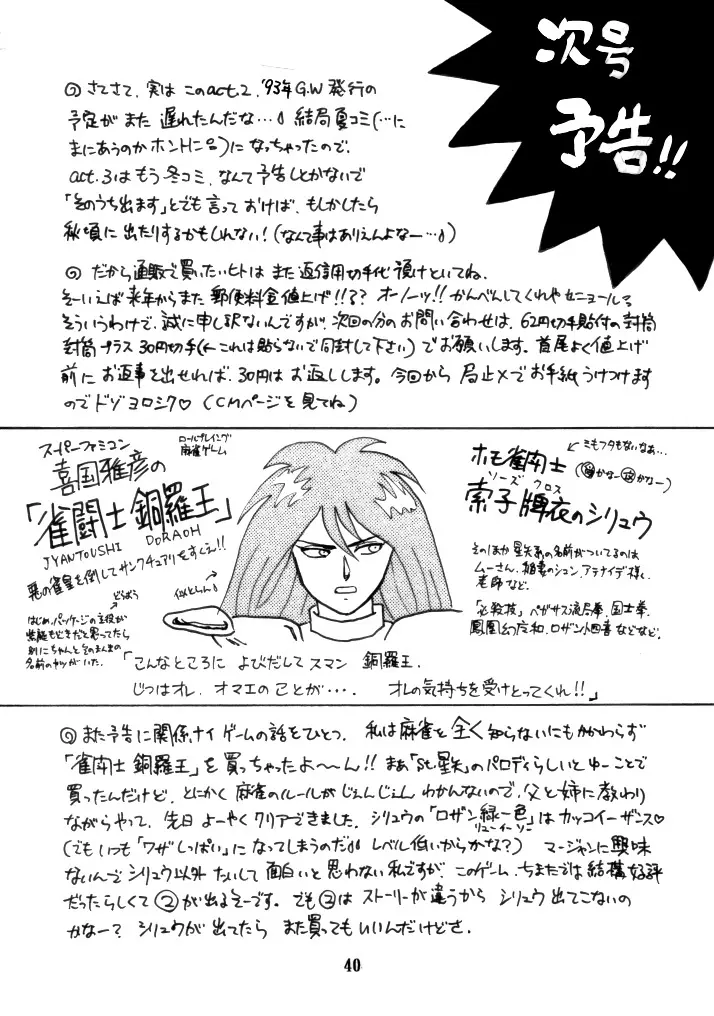 次号
予告!!
◎ さてさて、実は このact.2、'93年 G.W 発行の
予定が また 遅れたんだな…。 結局 夏コミ(…に
まにあうのか ホントに!?)に なっちゃったので、
act.3は もう 冬コミ、なんて 予告しとかないで
「そのうち出ます」とでも 言って おけば、もしかしたら
秋頃に 出たりするかもしれない! (なんて事はありえんよなー…。)
◎ だから通販で買いたいヒトは また 返信用切手代 預けといてね、
そーいえば 来年からまた 郵便料金値上げ!!?? オーノーッ!! かんべんしてくれや セニョール
そういうわけで、誠に申し訳ないんですが、次回の分の お問い合わせは、62円切手貼付の 封筒
封筒 プラス 30円切手(←これは貼らないで同封して下さい) でお願いします。首尾よく値上げ
前に お返事を出せれば、30円は お返しします。今回から 局止メで お手紙 うけつけます
ので ドゾ ヨロシク♡ (CMページを 見てね)
スーパーファミコン
ロールプレイング
麻雀ゲーム
喜国雅彦の
「雀闘士 銅羅王」
JYANTOUSHI DORAOH
悪の雀皇を倒してサンクチュアリをすくえ!!
どらおう
はじめ、パッケージの主役が
紫龍もどきだと思ってたら
別にちゃんとそのまんまの
名前のヤツがいた。
似とらん
←ミもフタもないなぁ…
ホモ雀闘士
ソーズ クロス
索子牌衣のシリュウ
そのほか 星矢系の名前がついてるのは
ムーさん、稲妻のシュン、アテナイデ様、
老師など。
「必殺技」 ペガサス流局拳、国士拳、
鳳凰幻、ロザント四喜 などなど。
「こんなところに よびだして スマン 銅羅王、
じつはオレ、オマエのことが…。 オレの気持ちを受けとってくれ!!」
◎ また予告に関係ナイ ゲームの話をひとつ、 私は麻雀を 全く 知らないにもかかわらず
「雀闘士 銅羅王」を 買っちゃったよ〜ん!! まあ「St.星矢」のパロディらしいと ゆーことで
買ったんだけど、とにかく 麻雀のルールが じぇんじぇん わかんないので、父と姉に教わり
ながらやって、先日 よーやく クリアできました。シリュウの「ロザン緑一色」は カッコイーザンス♡
リューイーソー
(でも いつも「ワザしっぱい」に なってしまうのだ レベル低いからかな?) マージャンに興味
ないんで シリュウ以外 たいして 面白いと 思わない私ですが、このゲーム、ちまたでは 結構 好評
だったらしくて ②が出るそーです。でも ②は ストーリーが違うから シリュウ出てこないの
かなー? シリュウが 出てたら また買っても いいんだけどさ.
40